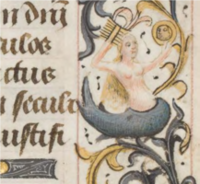 n dñi
culos
ctus
n seculi
ustifi